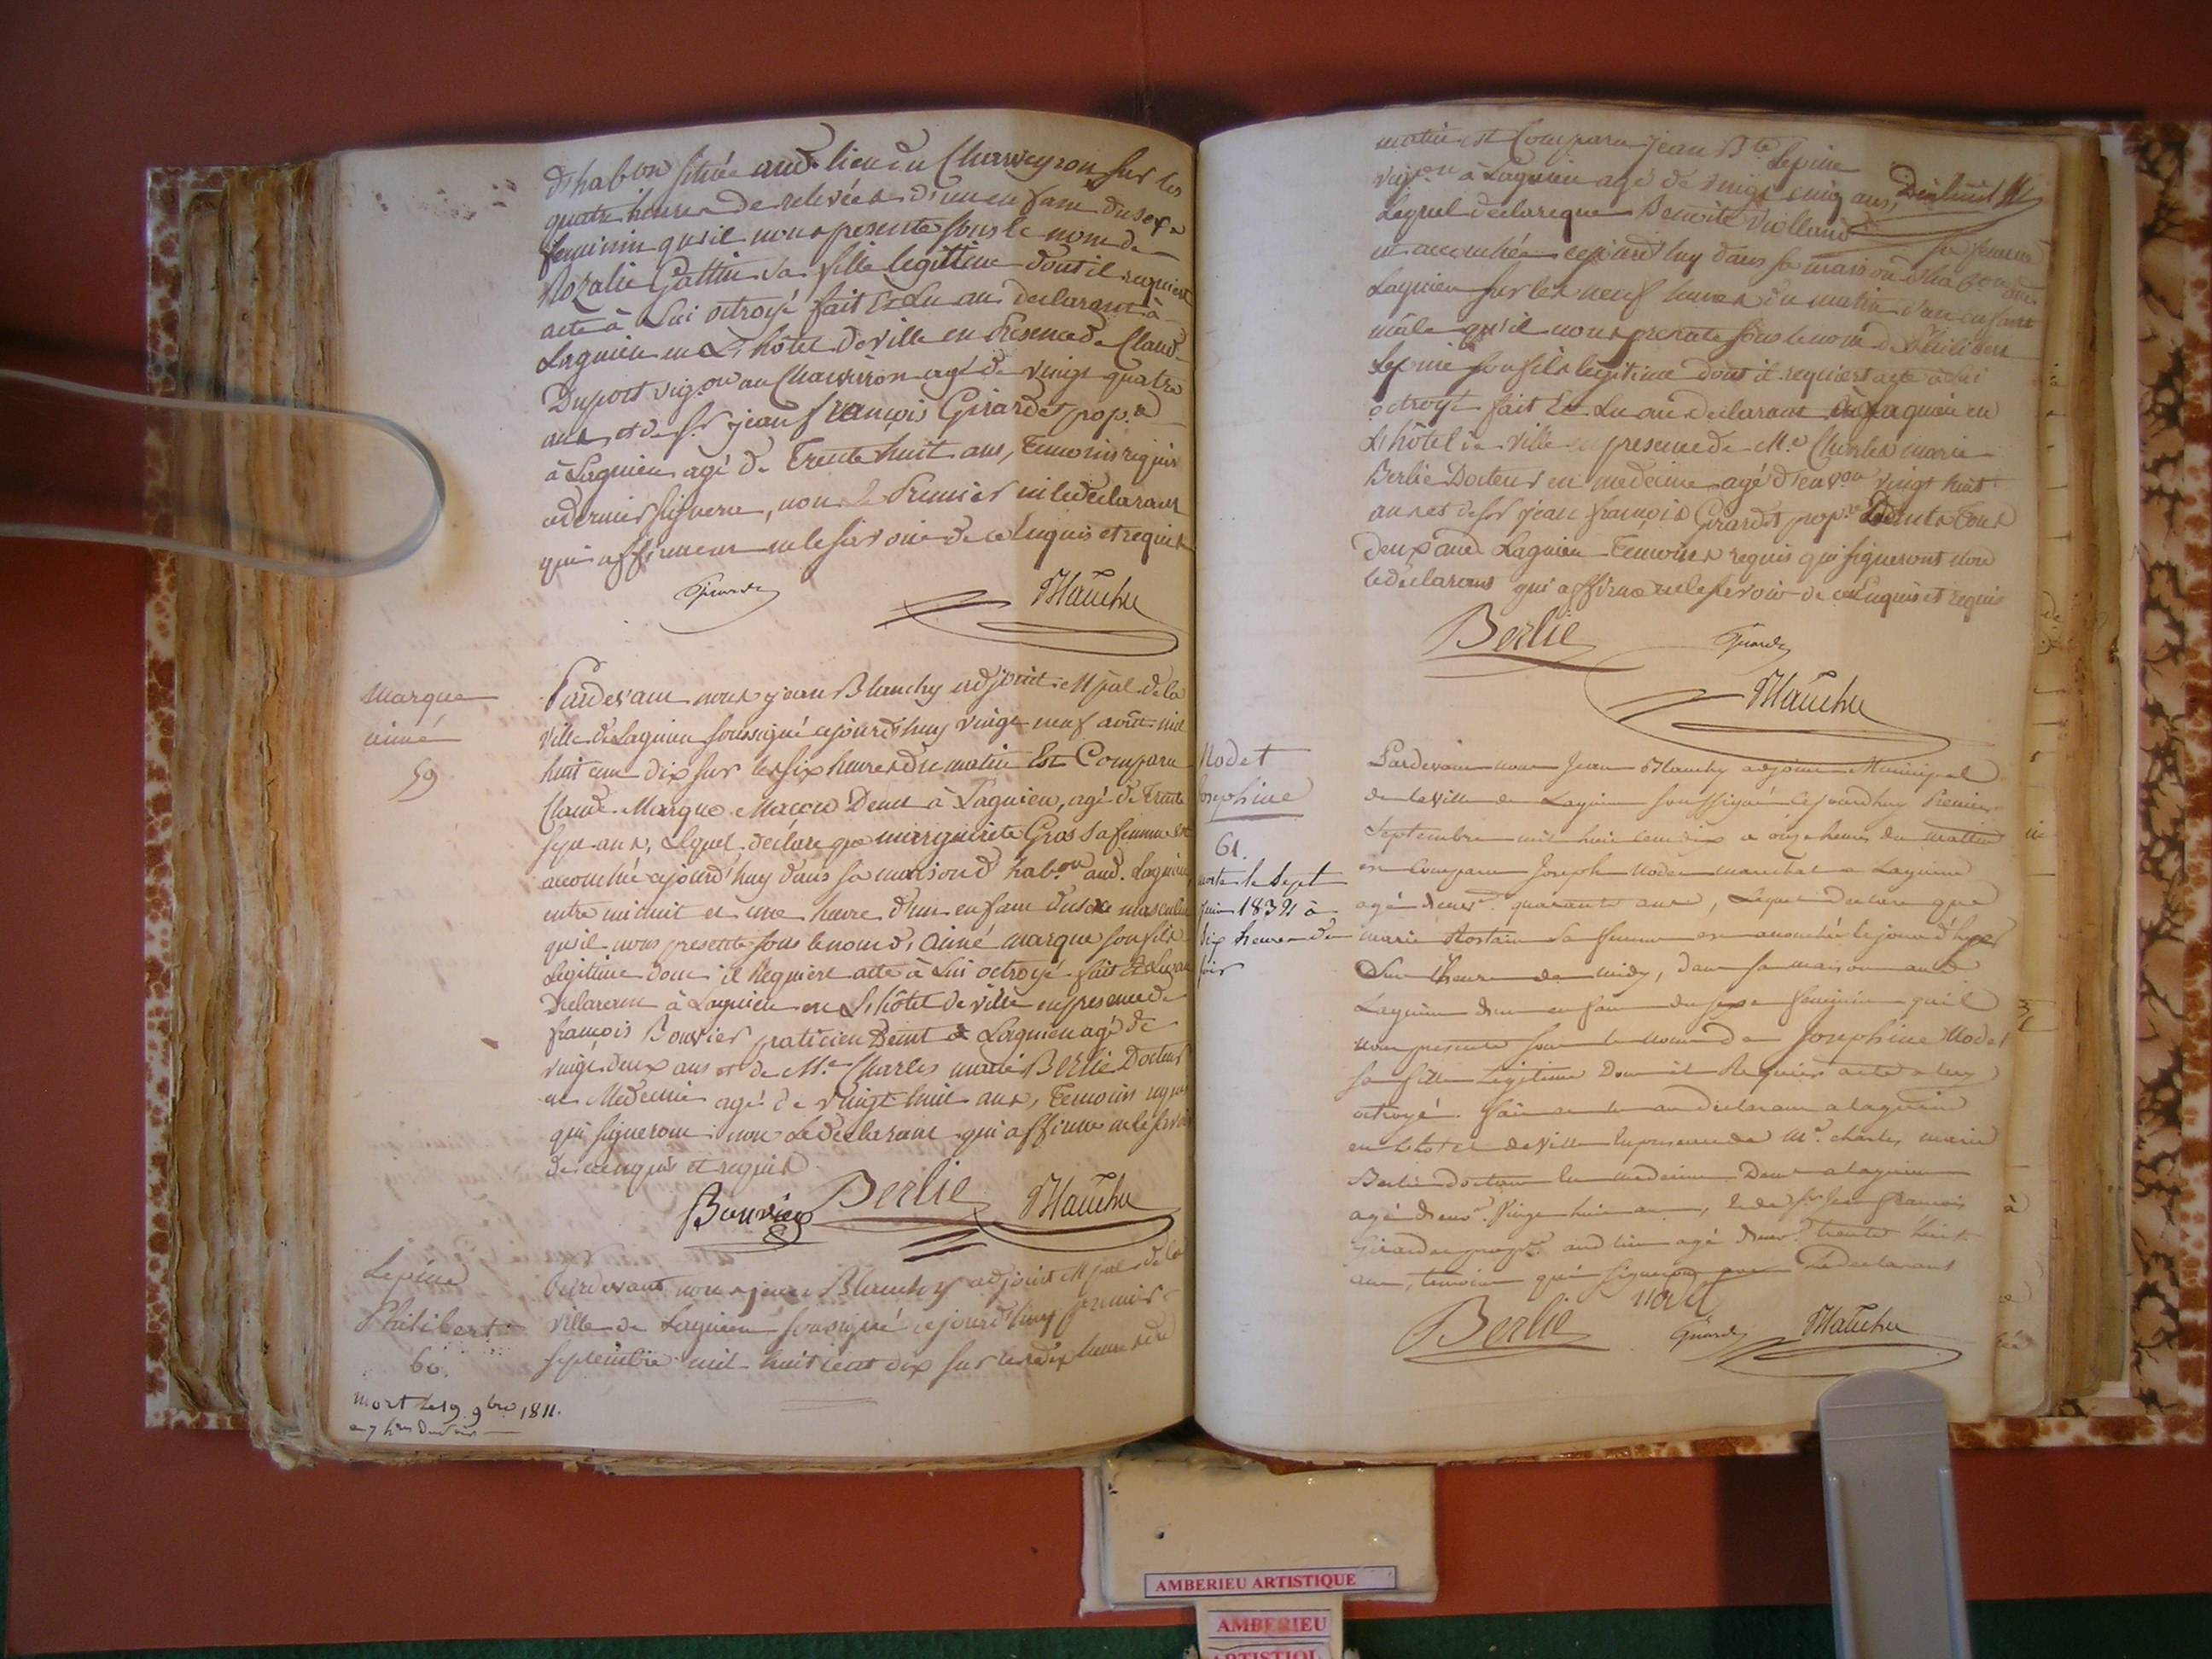 d'hab.on située aud. lieu du Charveyron sur les
quatre heures de relevées d'un enfant du sexe
feminin qu'il nous presente sous le nom de
Rozalie Gattin sa fille legitime dont il requiert
acte à Lui octroyé fait Et Lu au declarant à
Lagnieu en L'hôtel de ville en Presence de Claude
Duport vig.on au Charveiron agé de vingt quatre
ans et de S.r jean françois Girardet prop.re
à Lagnieu agé de Trente huit ans, temoins requis
ce dernier signera, non le Premier ni le declarant
qui affirment ne le savoir de ce Enquis et requis
Girardet Blanchy
Marque
aimé
59
Pardevant nous jean Blanchy adjoint M.pal de la
ville de Lagnieu soussigné cejourd'huy vingt neuf août mil
huit cent dix sur les six heures du matin Est Comparu
Claude Marque Macon Demt à Lagnieu, agé de Trente
sept ans, Lequel declare que marguerite Gros sa femme est
accouchée cejourd'huy dans sa maison d'hab.on aud. Lagnieu,
entre minuit et une heure d'un enfant du sexe masculin
qu'il nous presente sous le nom d'aimé marque son fils
Legitime dont il Requiert acte à Lui octroyé fait Et Lu au
Declarant à Lagnieu en L'hôtel de ville en presence de
françois Bouvier praticien Demt à Lagnieu agé de
vingt deux ans et de M.e Charles marie Berlie Docteur
en Medecine agé de vingt huit ans, Temoins requis
qui signeront non Le declarant qui affirme ne le savoir
de ce enquis et requis
Bouvier Berlie Blanchy
Lepine
Philibert
60.
mort le 19 9bre 1811.
a 7 h.res du soir
Pardevant nous jean Blanchy adjoint M.pal de la
ville de Lagnieu soussigné cejourd'huy premier
septembre mil huit cent dix sur les dix heures du
matin est Comparu jean B.te Lepine
vig.on à Lagnieu agé de vingt cinq ans,
Lequel declare que Benoite Violland sa femme
est accouchée cejourd'huy dans sa maison d'hab.on aud.
Lagnieu sur les neuf heures du matin d'un enfant
mâle qu'il nous presente sous le nom de Philibert
Lepine son fils legitime dont il requiert acte à Lui
octroyé fait Et Lu au Declarant à Lagnieu en
L'hôtel de ville en presence de M.e Charles marie
Berlie Docteur en medecine agé d'env.on vingt huit
ans et de S.r jean françois Girardet prop.re Demts tous
deux aud. Lagnieu Temoins requis qui signeront non
le declarant qui affirme ne le savoir de ce Enquis et requis
Berlie Girardet
Blanchy
Nodet
Josephine
61.
morte le Sept
juin 1832 à
dix heures du
soir
Pardevant nous Jean Blanchy adjoint Municipal
de la ville de Lagnieu soussigné Cejourd'huy Premier
Septembre mil huit cent dix a onze heures du mattin
est Comparu Joseph Nodet marechal a Lagnieu
agé d'env.n quarante ans, Lequel declare que
marie Rostain sa femme est accouchée le jour d'hyer
Sur l'heure de midy, dans sa maison aud
Lagnieu d'un enfant du sexe feminin qu'il
nous presente sous le nom de Josephine Nodet
sa fille Legitime dont il Requier acte a luy
octroyé. fait et lu au declarant a lagnieu
en L'hotel de ville En presence de M.e charles marie
Berlie docteur En medecine Demt a lagnieu
agé d'env.n Vingt huit ans, & de S.r jean francois
Girardet prop.re aud lieu agé d'env.n trente huit
ans, temoins qui signeront avec Le declarant
Berlie Nodet Girardet Blanchy
AMBERIEU ARTISTIQUE
AMBERIEU